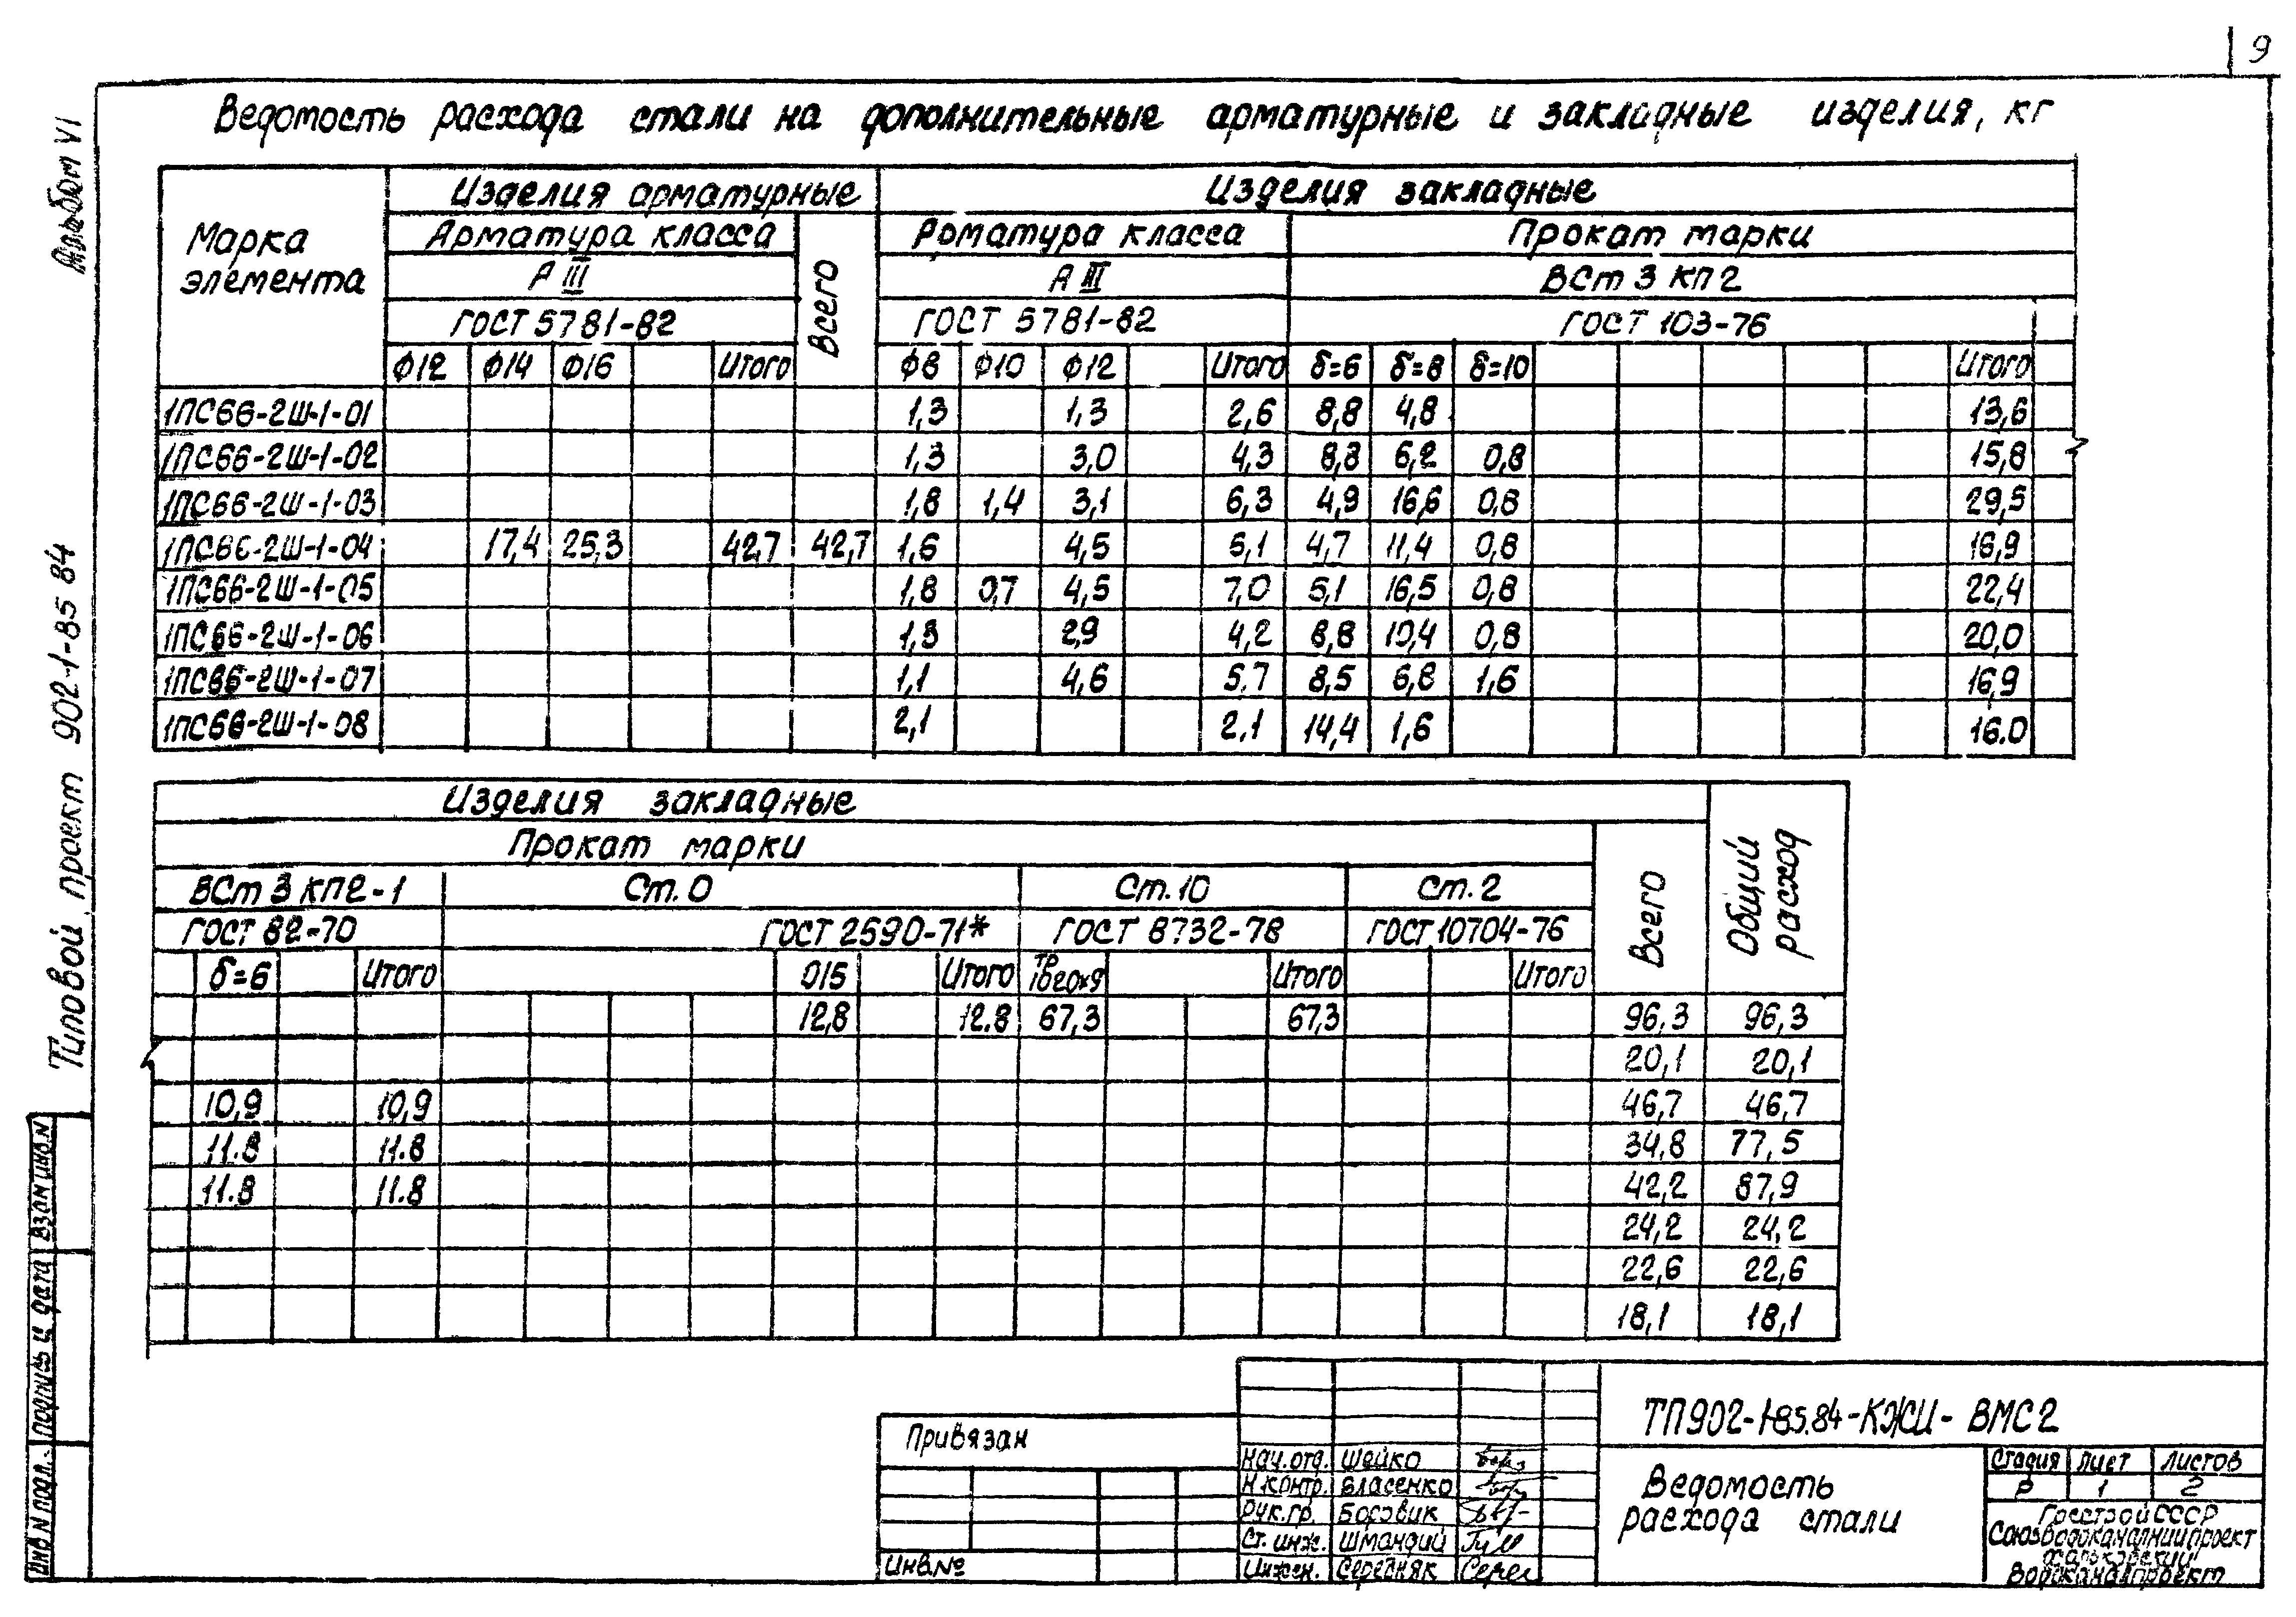 9
Ведомость расхода стали на дополнительные арматурные и закладные изделия, кг
Альбом VI
Типовой проект 902-1-85 84
Марка элемента | Изделия арматурные | Изделия закладные
Арматура класса | Всего | Арматура класса | Прокат марки
А III | А III | ВСт 3 КП 2
ГОСТ 5781-82 | ГОСТ 5781-82 | ГОСТ 103-76
Ф12 | Ф14 | Ф16 | Итого | Ф8 | Ф10 | Ф12 | Итого | δ=6 | δ=8 | δ=10 | Итого
1ПС66-2Ш-1-01 | 1,3 | 1,3 | 2,6 | 8,8 | 4,8 | 13,6
1ПС66-2Ш-1-02 | 1,3 | 3,0 | 4,3 | 8,8 | 6,2 | 0,8 | 15,8
1ПС66-2Ш-1-03 | 1,8 | 1,4 | 3,1 | 6,3 | 4,9 | 16,6 | 0,8 | 29,5
1ПС66-2Ш-1-04 | 17,4 | 25,3 | 42,7 | 42,7 | 1,6 | 4,5 | 6,1 | 4,7 | 11,4 | 0,8 | 16,9
1ПС66-2Ш-1-05 | 1,8 | 0,7 | 4,5 | 7,0 | 5,1 | 16,5 | 0,8 | 22,4
1ПС66-2Ш-1-06 | 1,3 | 2,9 | 4,2 | 8,8 | 10,4 | 0,8 | 20,0
1ПС66-2Ш-1-07 | 1,1 | 4,6 | 5,7 | 8,5 | 6,8 | 1,6 | 16,9
1ПС66-2Ш-1-08 | 2,1 | 2,1 | 14,4 | 1,6 | 16.0
Изделия закладные | Общий расход
Прокат марки | Всего
ВСт 3 КП2-1 | Ст.0 | Ст.10 | Ст.2
ГОСТ 82-70 | ГОСТ 2590-71* | ГОСТ 8732-78 | ГОСТ 10704-76
δ=6 | Итого | Итого | Итого | Итого
12,8 | 12.8 | 67,3 | 67,3 | 96,3 | 96,3
20,1 | 20,1
10,9 | 10,9 | 46,7 | 46,7
11.8 | 11.8 | 34,8 | 77,5
11.8 | 11.8 | 42,2 | 87,9
24,2 | 24,2
22,6 | 22,6
18,1 | 18,1
Взам инв.N
Подпись и дата
Инв N подл.
Привязан
Инв№
Нач.отд. Шейко
Н контр. Власенко
Рук.гр. Боровик
Ст. инж. Шмандий
Инжен. Середняк
ТП902-1-85.84-КЖИ- ВМС2
Ведомость
расхода стали
Стадия | Лист | Листов
Р | 1 | 2
Госстрой СССР
Союзводоканалниипроект
Харьковский
Водоканалпроект